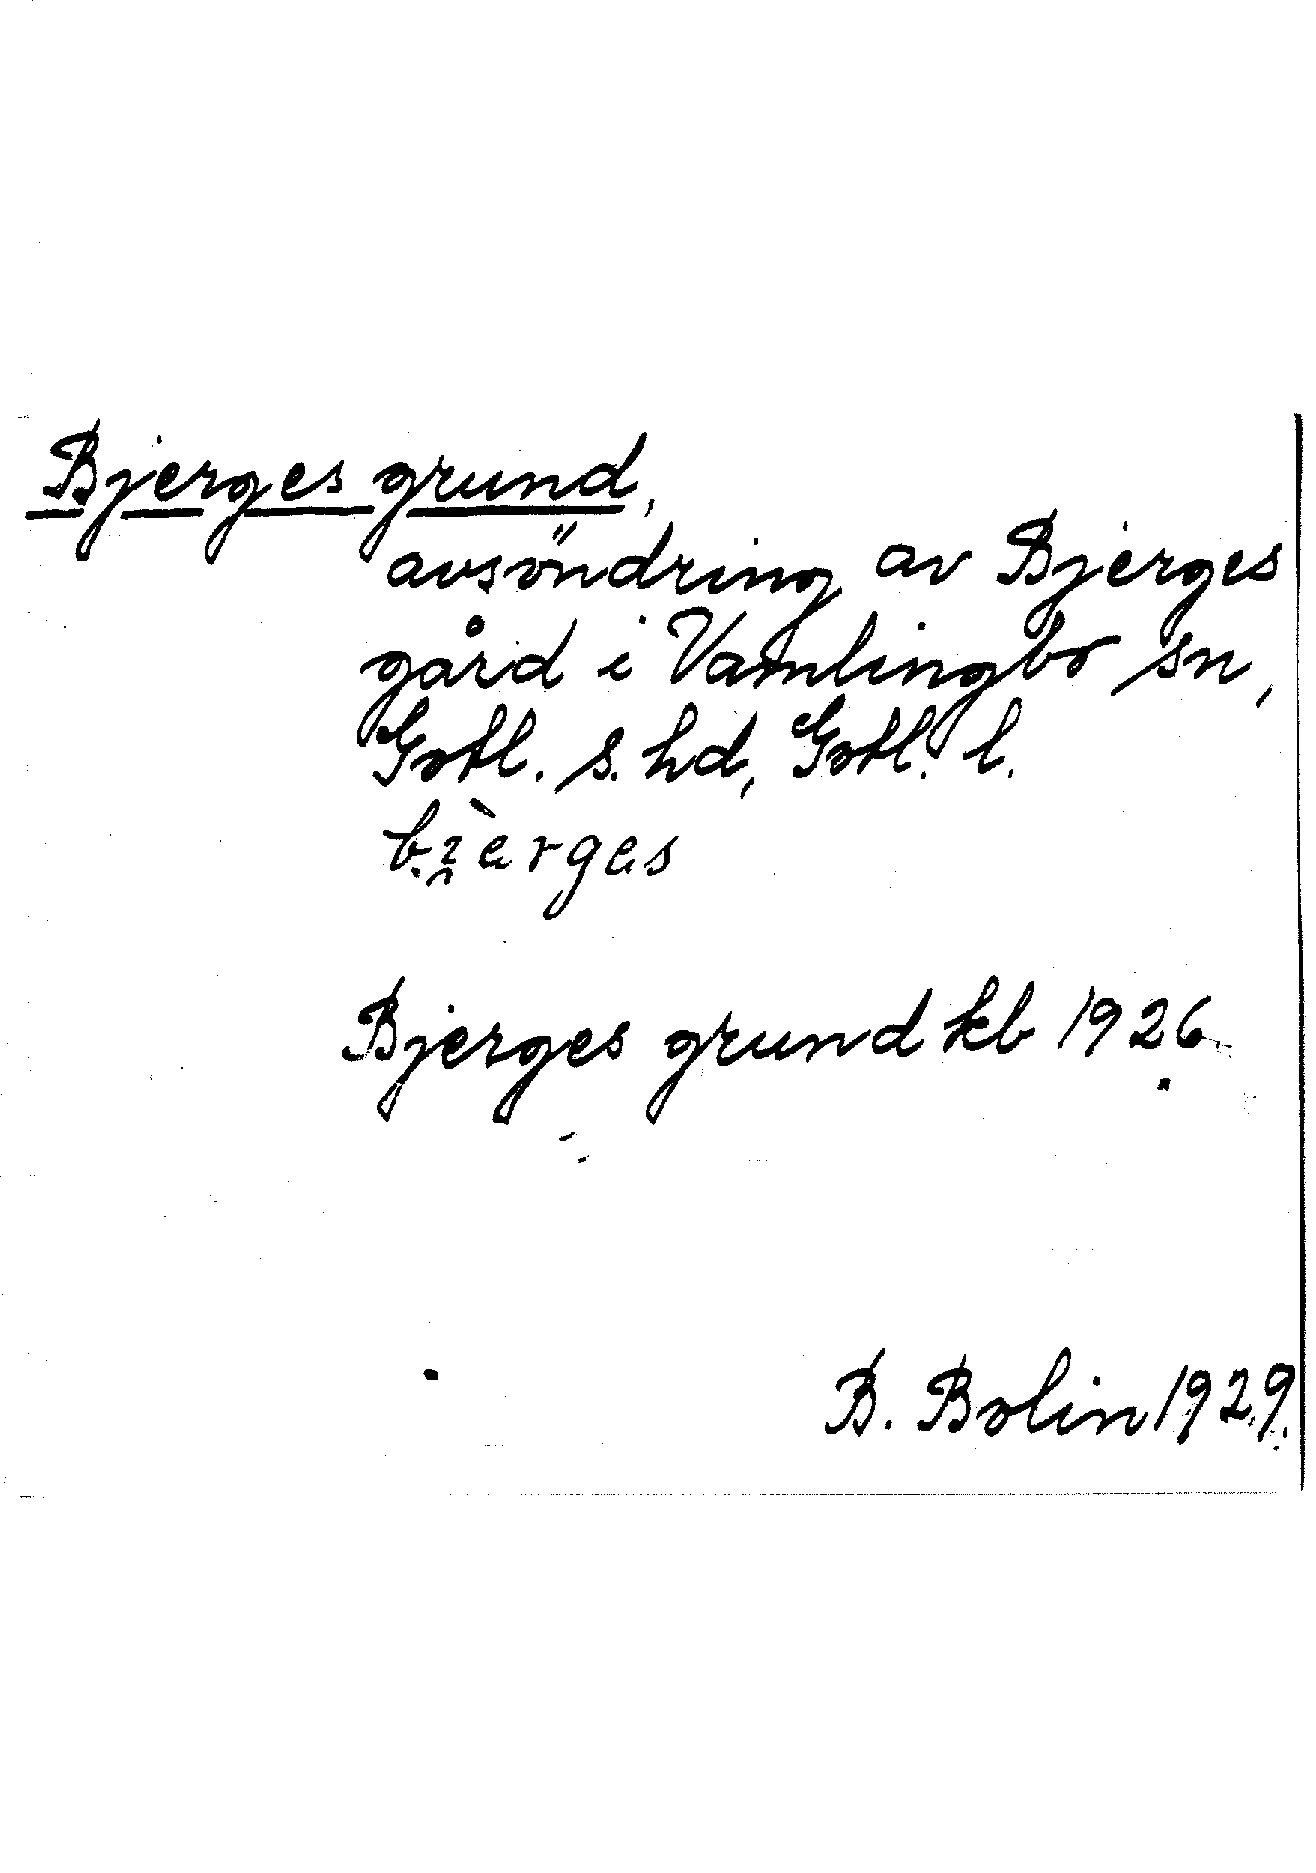 Bjerges grund,
avsöndring av Bjerges
gård i Vamlingbo sn,
Gotl. s. hd, Gotl. l.
bi̯èrges
Bjerges grund kb 1926
B. Bolin 1929.